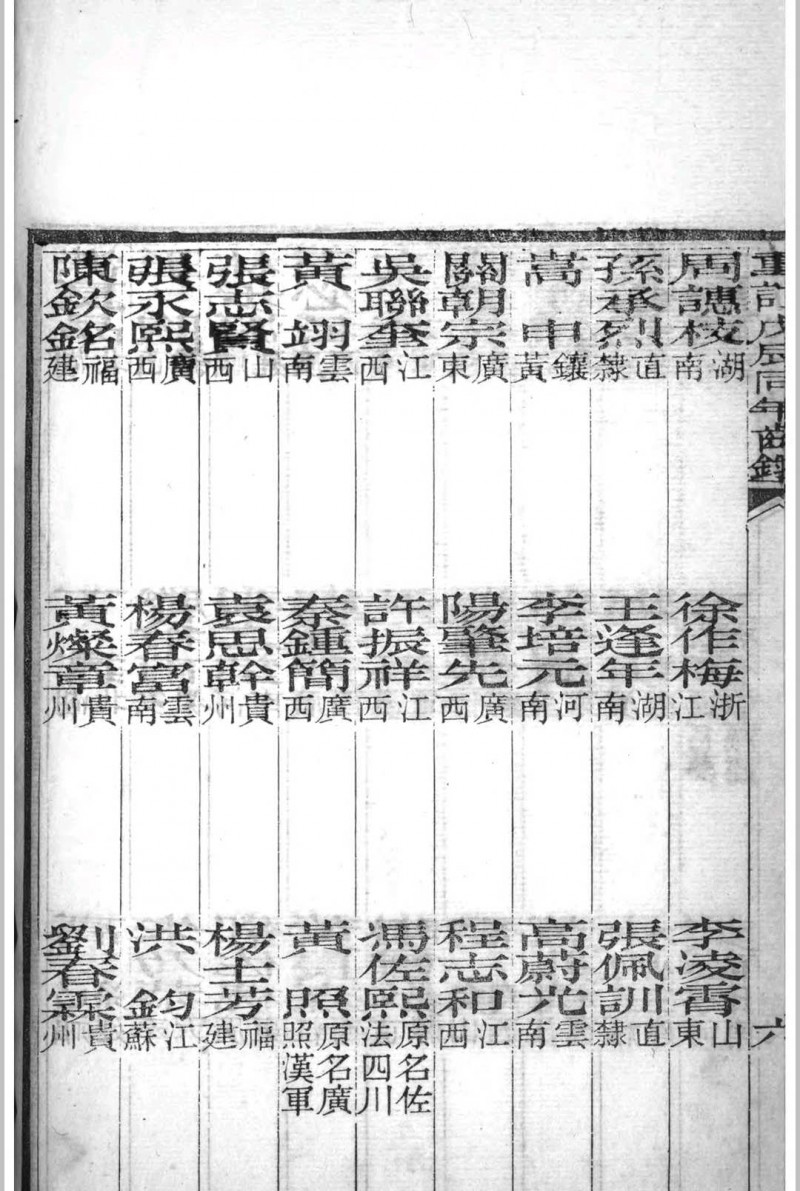 重訂戊辰同年齒錄 六
周譓枝 湖南 徐作梅 浙江 李凌霄 山東
孫丞烈 直隸 王逢年 湖南 張佩訓 直隸
嵩申 鑲黃 李培元 河南 高蔚光 雲南
關朝宗 廣東 陽肇先 廣西 程志和 江西
吳聯奎 江西 許振祥 江西 馮佐熙 原名佐法四川
黃翊 雲南 秦鍾簡 廣西 黃照 原名廣照漢軍
張志賢 山西 袁思幹 貴州 楊士芳 福建
張永熙 廣西 楊春富 雲南 洪鈞 江蘇
陳欽銘 福建 黃燦章 貴州 劉春霖 貴州